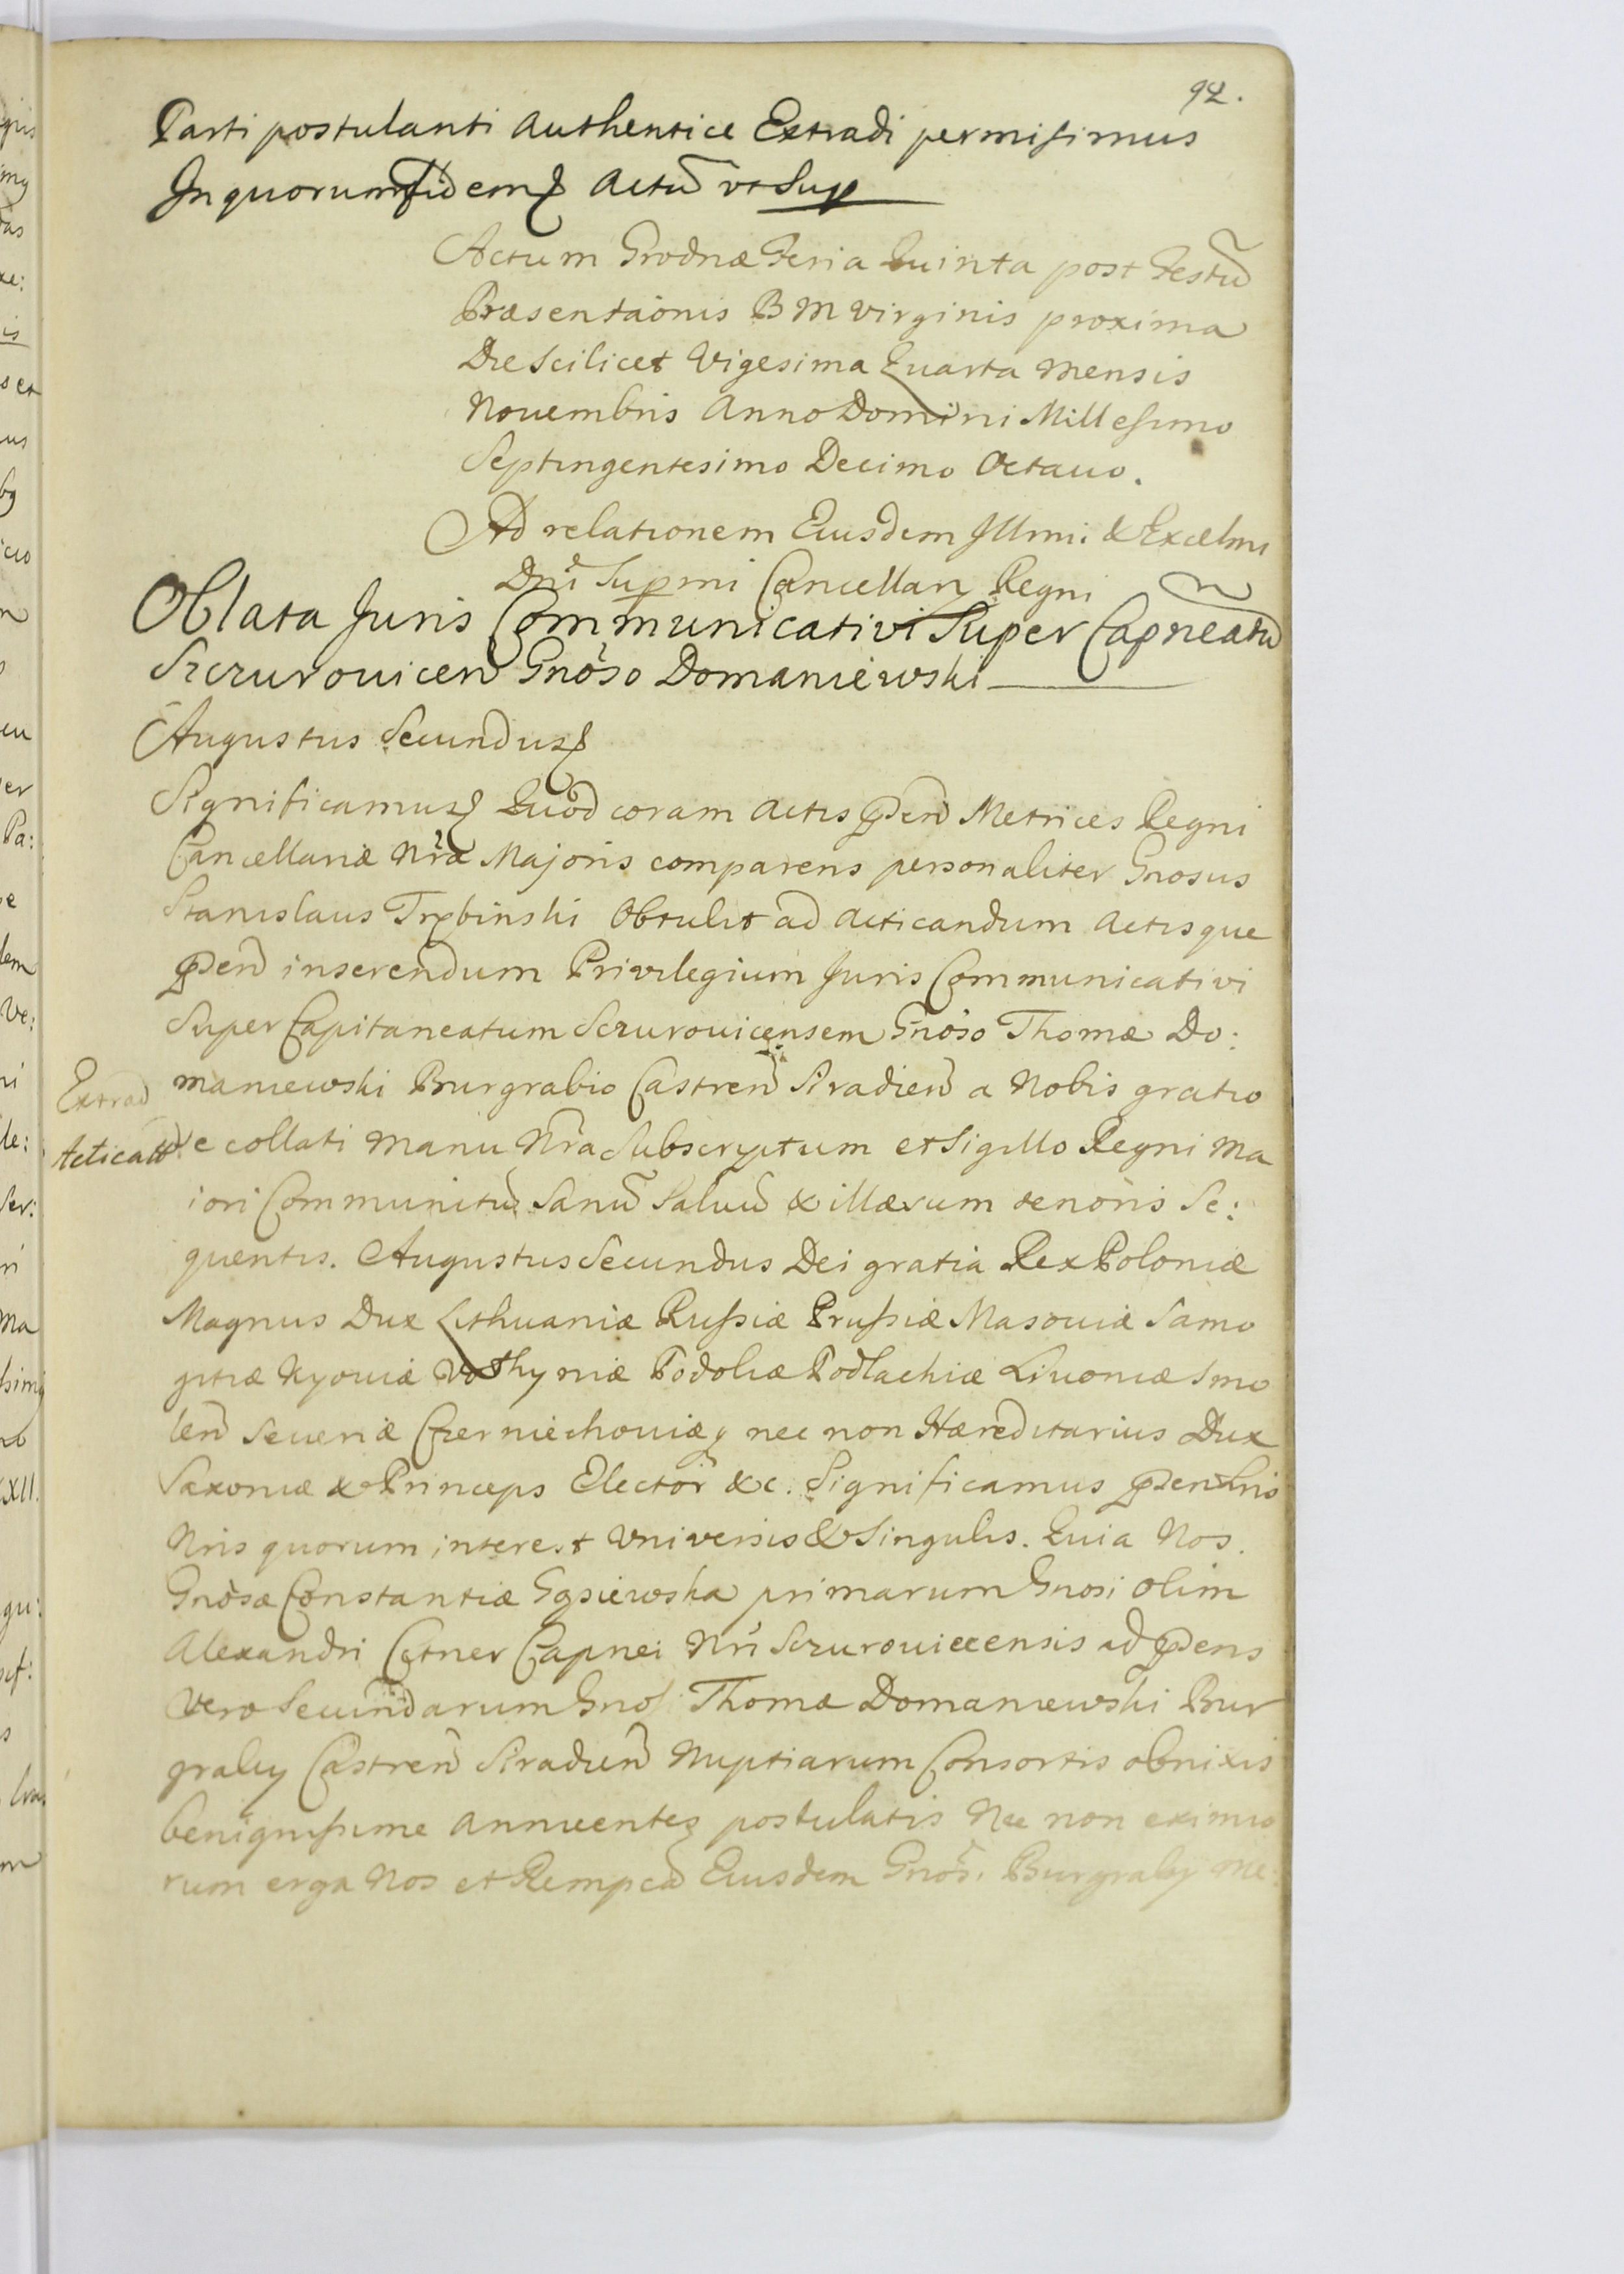 92.
Parti postulanti Authentice Extradi permisimus
In quorum fidem Actũ vt Sup
Actum Grodnæ Feria Quinta post Festũ
Præsentaõnis B M Virginis proxima
Die Scilicet Vigesima Quarta Mensis
Nouembris Anno Domini Millesimo
Septingentesimo Decimo Octauo.
Ad relationem Eiusdem Illmi: & Excelmi
Dni Supmi Cancellary Regni
Oblata Juris Communicativi Super Capneatũ
Szczurouicen Gnoso Domaniewski
Augustus Secundus
Significamus Quod coram Actis pñen Metrices Regni
Cancellariæ Nræ Majoris comparens personaliter Gnosus
Stanislaus Trębinski Obtulit ad Acticandum Actisque
pñen inserendum Privilegium Juris Communicativi
Super Capitaneatum Sczurouicensem Gnoso Thomæ Do:
maniewski Burgrabio Castren Siradien a Nobis gratio
Extrad
Acticatt
e collati Manu Nra Subscryptum et Sigillo Regni Ma
iori Communitũ Sanũ Saluũ & illæsum tenoris Se:
quentis. Augustus Secundus Dei gratia Rex Poloniæ
Magnus Dux Lithuaniæ Russiæ Prussiæ Masouiæ Samo
gitiæ Kyouiæ Volhyniæ Podoliæ Podlachiæ Liuoniæ Smo
len Seueriæ Czerniechouiæq nec non Hæreditarius Dux
Saxoniæ & Princeps Elector &c. Significamus pñentibus Lris
Nris quorum interest Vniversis & Singulis. Quia Nos
Gnosæ Constantiæ Gąsiewska primarum Gnosi olim
Alexandri Cetner Capnei Nri Sczurouiecensis ad pñens
Vero Secundarum Gnos Thomæ Domaniewski Bur
graby Castren Siradien Nuptiarum Consortis obnixis
benignissime Annuentes postulatis Nec non eximio
rum erga Nos et Rempcã Eiusdem Gnos. Burgraby Me: